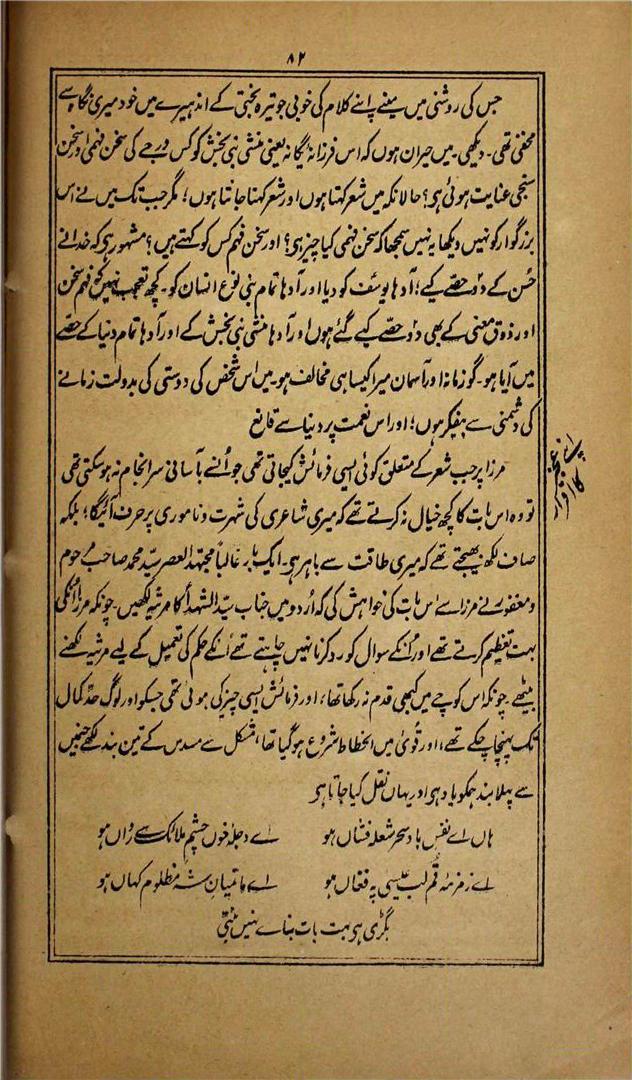 ۸۲
جس کی روشنی میں مینے اپنے کلام کی خوبی جو تیرہ بختی کے اندہیرے میں خود میری نگاہ سے
مخفی تھی۔ دیکھی۔ میں حیران ہوں کہ اس فرزانۂ یگانہ یعنی منشی نبی بخش کو کس درجے کی سخن فہمی اور سخن
سنجی عنایت ہوئی ہی؟ حالانکہ میں شعر کہتا ہوں اور شعر کہنا جانتا ہوں؛ مگر جب تک میں نے اس
بزرگوار کو نہیں دیکھا یہ نہیں سمجھا کہ سخن فہمی کیا چیز ہی؟ اور سخن فہم کس کو کہتے ہیں؟ مشہور ہی کہ خدا نے
حُسن کے دو حصّے کیے؛ آدہا یوسف کو دیا اور آدہا تمام بنی نوع انسان کو۔ کچھ تعجب نہیں کہ فہم سخن
اور ذوق معنی کے بھی دو حصّے کیے گئے ہوں اور آدہا منشی نبی بخش کے اور آدہا تمام دنیا کے حصّے
میں آیا ہو۔ گو زمانہ اور آسمان میرا کیسا ہی مخالف ہو۔ میں اس شخص کی دوستی کی بدولت زمانے
کی دشمنی سے بیفکر ہوں؛ اور اس نعمت پر دنیا سے قانع
مرزا پر جب شعر کے متعلق کوئی ایسی فرمائش کیجاتی تھی جو اُنسے بآسانی سرانجام نہو سکتی تھی
تو وہ اس بات کا کچھ خیال نہ کرتے تھے کہ میری شاعری کی شہرت و ناموری پر حرف آئیگا؛ بلکہ
صاف لکھ بھیجتے تھے کہ میری طاقت سے باہر ہی۔ ایک بار غالباً مجتہد العصر سیّد محمد صاحب مرحوم
و مغفور نے مرزا سے اس بات کی خواہش کی کہ اُردو میں جناب سیّد الشہداؑ کا مرثیہ لکھیں۔ چونکہ مرزا اُنکی
بہت تعظیم کرتے تھے اور اُنکے سوال کو رد کرنا نہیں چاہتے تھے اُنکے حکم کی تعمیل کے لیے مرثیہ لکھنے
بیٹھے۔ چونکہ اس کوچے میں کبھی قدم نہ رکھا تھا، اور فرمائش ایسی چیز کی ہوئی تھی جسکو اور لوگ حدّ کمال
تک پہنچا چکے تھے، اور قویٰ میں انحطاط شروع ہو گیا تھا، مشکل سے مسدس کے تین بند لکھے جنمیں
سے پہلا بند ہمکو یاد ہی اور یہاں نقل کیا جاتا ہی
ہاں اے نفس باد سحر شعلہ فشاں ہو اے دجلۂ خوں چشمِ ملائک سے رواں ہو
اے زمزمۂ قُم لب عیسیٰ پہ فغاں ہو اے ماتمیانِ شہِ مظلوم کہاں ہو
بگڑی ہی بہت بات بنائے نہیں بنتی
اپنے عجز کا اقرار